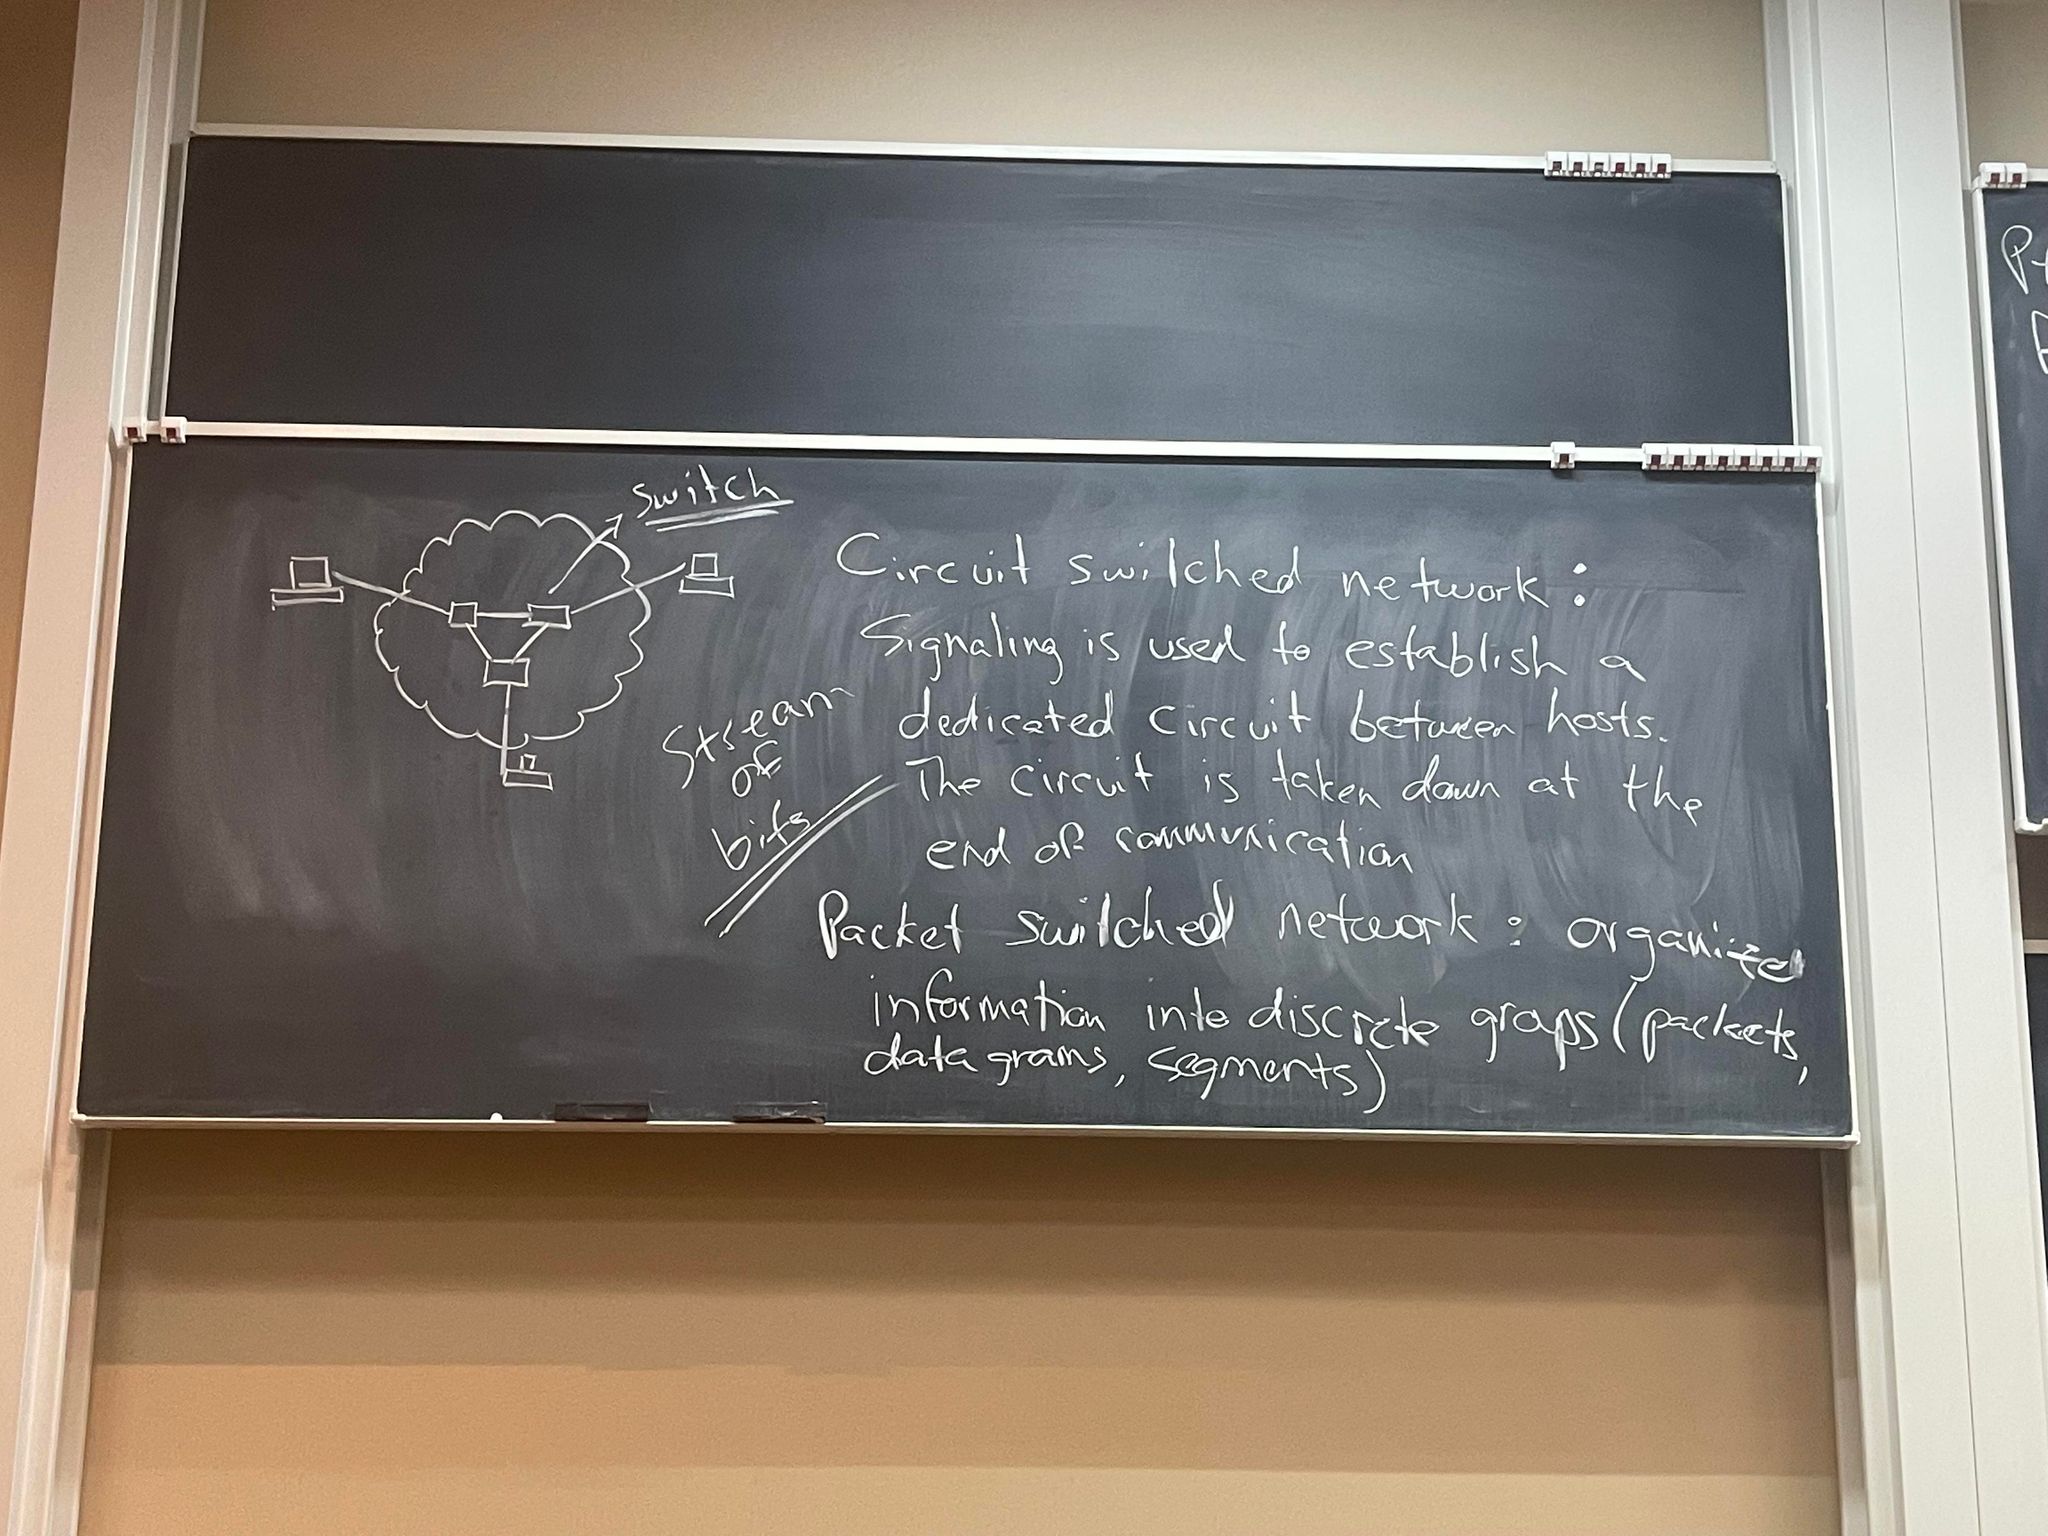 switch
Circuit switched network:
Signaling is used to establish a
dedicated circuit between hosts.
The circuit is taken down at the
end of communication
Stream
of
bits
Packet switched network: organize
information into discrete groups (packets,
datagrams, segments)